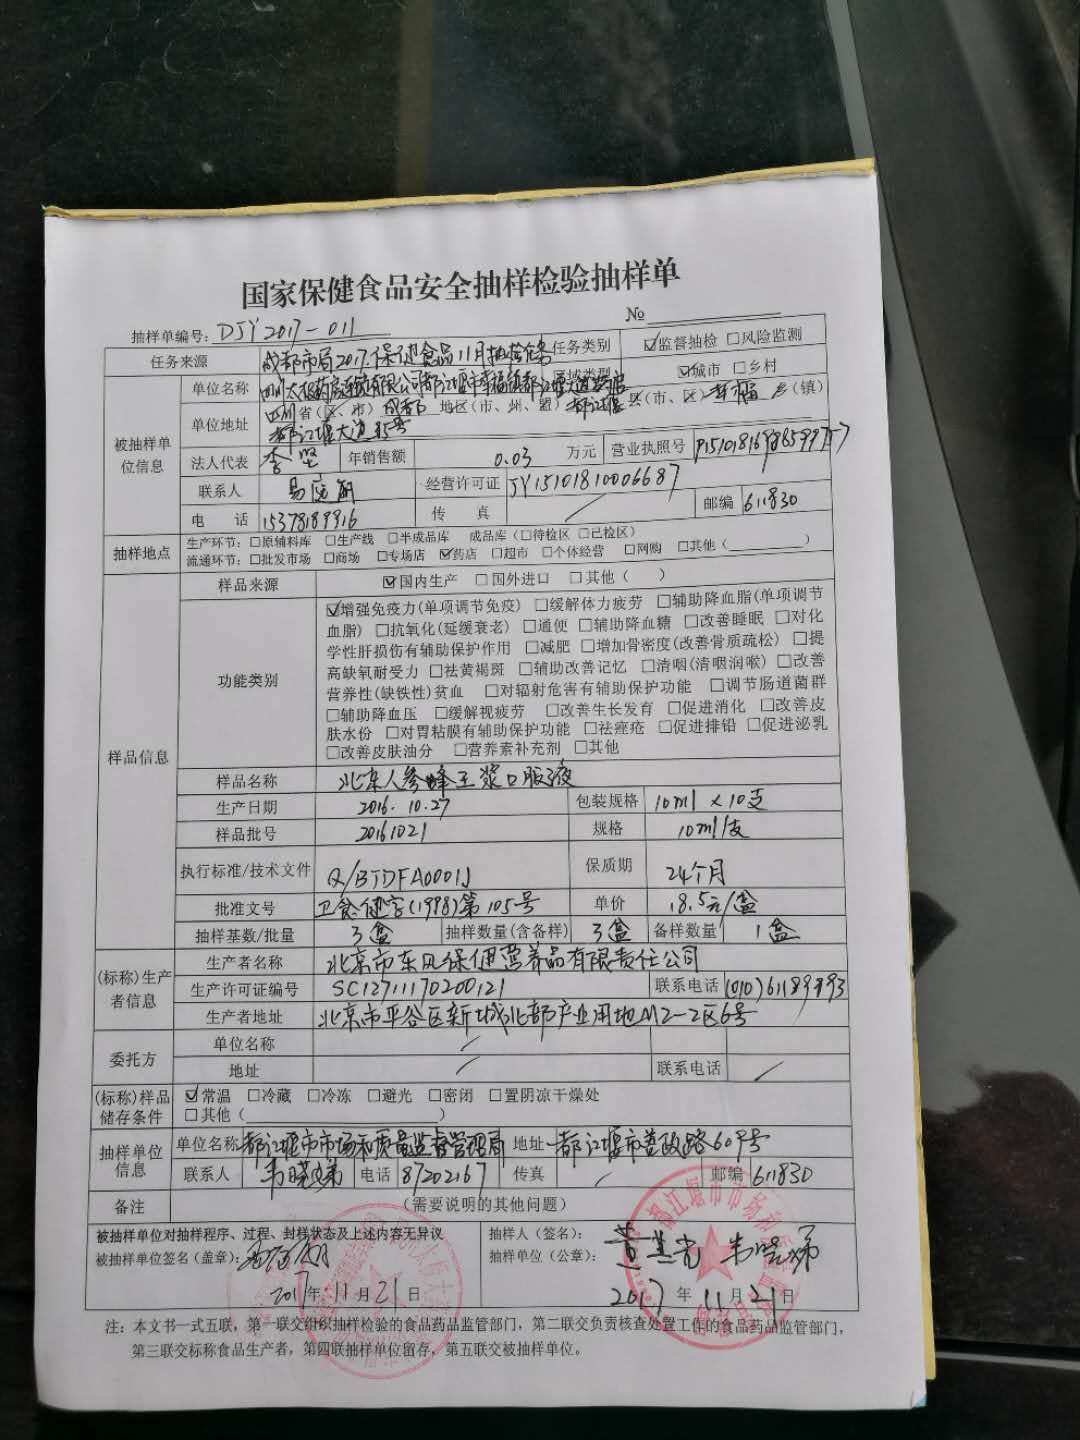 国家保健食品安全抽样检验抽样单
№
抽样单编号: DJY2017-011
任务来源 成都市局2017.保健食品11月抽检任务 任务类别 ☑监督抽检 □风险监测
区域类型 ☑城市 □乡村
被抽样单位信息 单位名称 四川太极药房连锁有限公司都江堰市幸福镇都江堰大道药店
单位地址 四川省(区、市) 成都 地区(市、州、盟) 都江堰 县(市、区) 幸福 乡(镇)
都江堰大道85号
法人代表 李坚 年销售额 0.03 万元 营业执照号
联系人 经营许可证 JY15101810006687
电 话 15378189916 传 真 / 邮编 611830
抽样地点 生产环节: □原辅料库 □生产线 □半成品库 成品库(□待检区 □已检区)
流通环节: □批发市场 □商场 □专场店 ☑药店 □超市 □个体经营 □网购 □其他( )
样品信息 样品来源 ☑国内生产 □国外进口 □其他( )
功能类别 ☑增强免疫力(单项调节免疫) □缓解体力疲劳 □辅助降血脂(单项调节
血脂) □抗氧化(延缓衰老) □通便 □辅助降血糖 □改善睡眠 □对化
学性肝损伤有辅助保护作用 □减肥 □增加骨密度(改善骨质疏松) □提
高缺氧耐受力 □祛黄褐斑 □辅助改善记忆 □清咽(清咽润喉) □改善
营养性(缺铁性)贫血 □对辐射危害有辅助保护功能 □调节肠道菌群
□辅助降血压 □缓解视疲劳 □改善生长发育 □促进消化 □改善皮
肤水份 □对胃粘膜有辅助保护功能 □祛痤疮 □促进排铅 □促进泌乳
□改善皮肤油分 □营养素补充剂 □其他
样品名称 北京人参蜂王浆口服液
生产日期 2016.10.27 包装规格 10ml×10支
样品批号 20161021 规格 10ml/支
执行标准/技术文件 Q/BJDFA0001J 保质期 24个月
批准文号 卫食健字(1998)第105号 单价 18.5元/盒
抽样基数/批量 3盒 抽样数量(含备样) 3盒 备样数量 1盒
(标称)生产者信息 生产者名称 北京市东风保健营养品有限责任公司
生产许可证编号 SC12711170200121 联系电话 (010)61189893
生产者地址 北京市平谷区新城北部产业用地M2-2区6号
委托方 单位名称 /
地址 / 联系电话 /
(标称)样品储存条件 ☑常温 □冷藏 □冷冻 □避光 □密闭 □置阴凉干燥处
□其他( )
抽样单位信息 单位名称 都江堰市市场和质量监督管理局 地址 都江堰市善政路609号
联系人 电话 87202167 传真 / 邮编 611830
备注 (需要说明的其他问题)
被抽样单位对抽样程序、过程、封样状态及上述内容无异议 抽样人(签名):
被抽样单位签名(盖章): 抽样单位(公章):
2017年11月21日 2017年11月21日
注: 本文书一式五联,第一联交组织抽样检验的食品药品监管部门,第二联交负责核查处置工作的食品药品监管部门,
第三联交标称食品生产者,第四联抽样单位留存,第五联交被抽样单位。